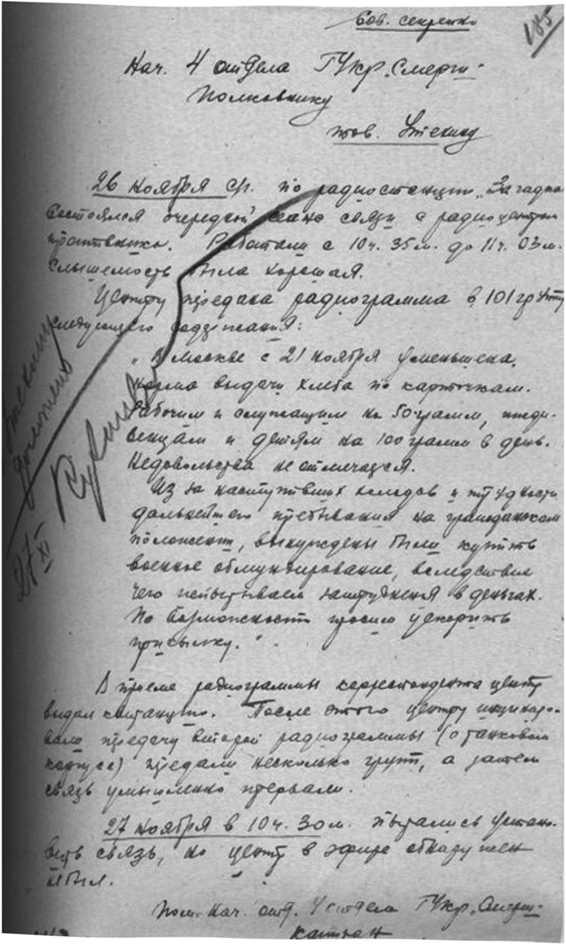 Сов. секретно
185
Нач. 4 отдела ГУкр. "Смерш"
Полковнику
тов. Утехину
26 ноября с/г. по радиостанции "Загадка
состоялся очередной сеанс связи с радиоцентром
противника. Работали с 10 ч. 35 м. до 11 ч. 03 м.
слышемость была хорошая.
Центру передана радиограмма в 101 группу
следующего содержания:
"В Москве с 21 ноября уменьшена
норма выдачи хлеба по карточкам.
Рабочим и служащим на 50 грамм, ижди-
венцам и детям на 100 грамм в день.
Недовольства не отмечается.
Из за наступивших холодов и трудности
дальнейшего пребывания на гражданском
положении, вынуждены были купить
военное обмундирование, вследствие
чего испытываем затруднения в деньгах.
По возможности просим ускорить
присылку."
В приеме радиограммы корреспондента центр
выдал квитанцию. После этого центру
передачу второй радиограммы (о танковом
корпусе) передали несколько групп, а затем
связь умышленно прервали.
27 ноября в 10 ч. 30 м. пытались устано-
вить связь, но центр в эфире обнаружен
не был.
Пом. нач. отд. 4 отдела ГУкр. "Смерш"
капитан
доложено
27/XI